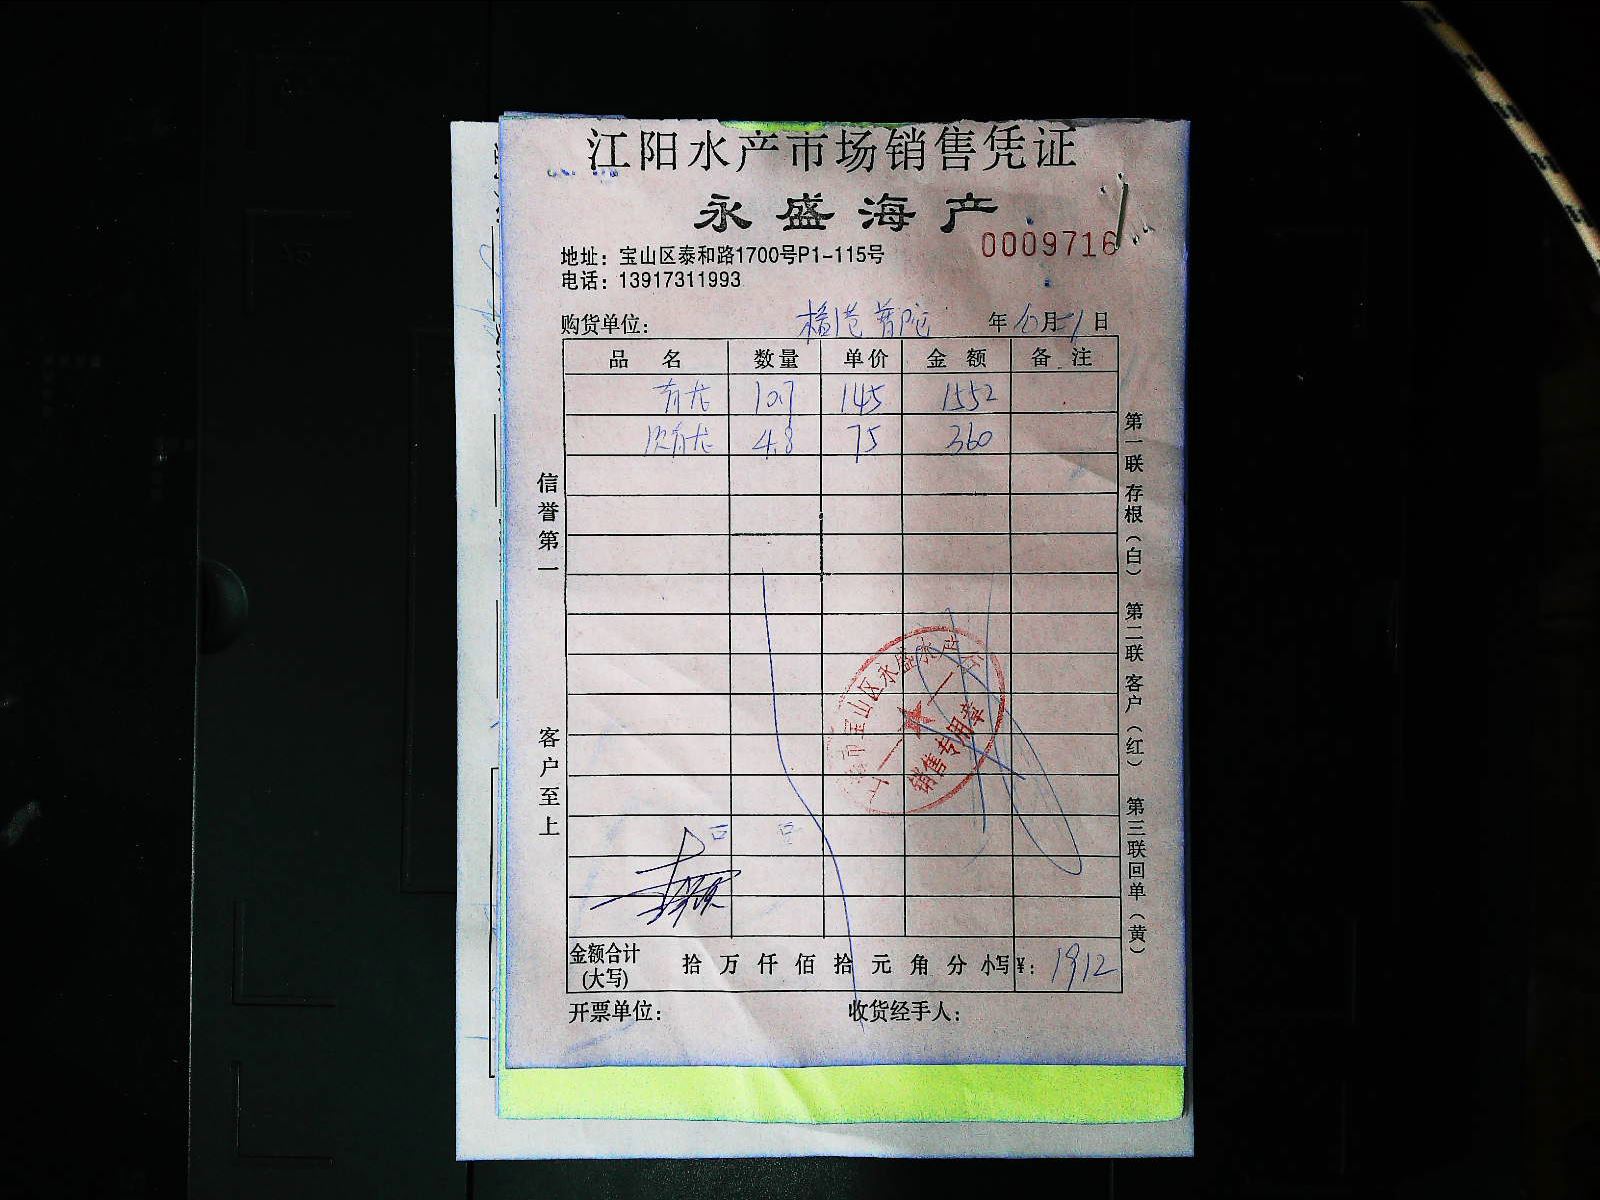 江阳水产市场销售凭证
永盛海产
0009716
地址：宝山区泰和路1700号P1-115号
电话：13917311993
购货单位： 普陀 年 月 日
品 名 数量 单价 金 额 备 注
青龙 10.7 145 1552
次青龙 4.8 75 360
信誉第一
客户至上
第一联 存根（白） 第二联 客户（红） 第三联 回单（黄）
市宝山区永盛水产行
销售专用章
金额合计 拾 万 仟 佰 拾 元 角 分 小写¥：1912
(大写)
开票单位： 收货经手人：